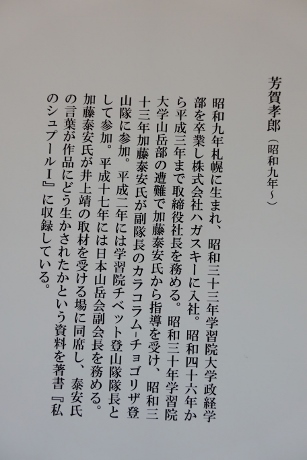 芳賀孝郎（昭和九年～）
昭和九年札幌に生まれ、昭和三十三年学習院大学政経学
部を卒業し株式会社ハガスキーに入社。昭和四十六年か
ら平成三年まで取締役社長を務める。昭和三十年学習院
大学山岳部の遭難で加藤泰安氏から指導を受け、昭和三
十三年加藤泰安氏が副隊長のカラコラム―チョゴリザ登
山隊に参加。平成二年には学習院チベット登山隊隊長と
して参加。平成十七年には日本山岳会副会長を務める。
加藤泰安氏が井上靖の取材を受ける場に同席し、泰安氏
の言葉が作品にどう生かされたかという資料を著書『私
のシュプールⅠ』に収録している。